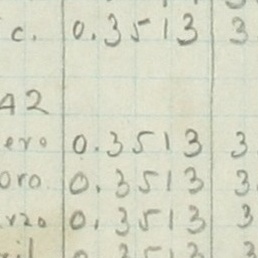 c. 0.3513 3
A2
ero 0.3513 3
oro 0.3513 3
rzo 0.3513 3
ril 0.3513 3